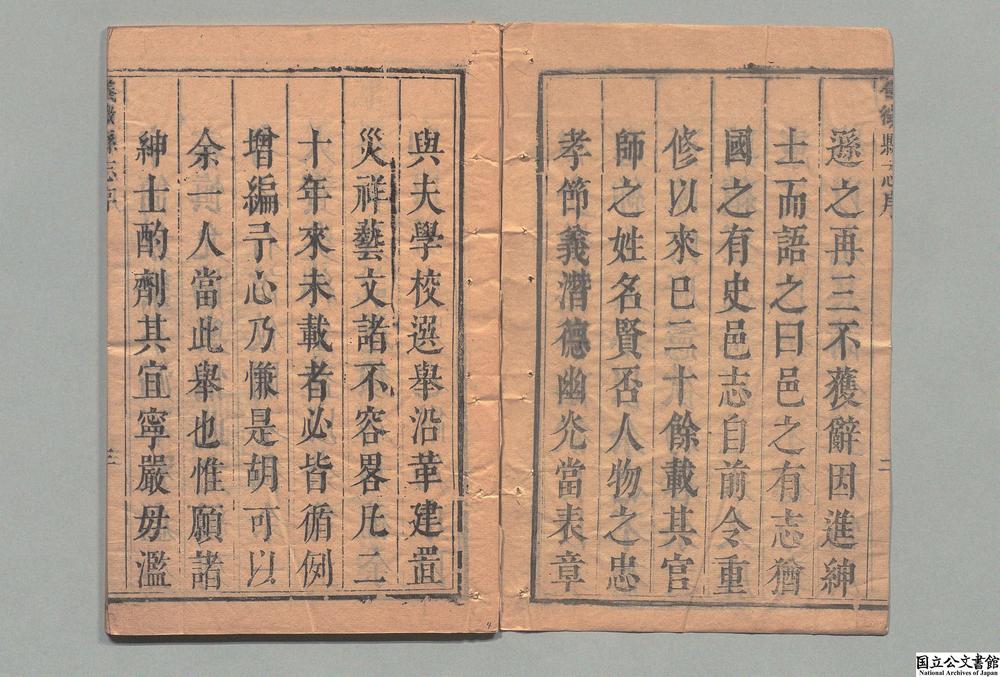 遜之再三不獲辭因進紳
士而語之曰邑之有志猶
國之有史邑志自前令重
修以來巳二十餘載其官
師之姓名賢否人物之忠
孝節義潛德幽光當表章
與夫學校選舉沿革建置
災祥藝文諸不容畧凡二
十年來未載者必皆循例
增編予心乃慊是胡可以
余一人當此舉也惟願諸
紳士酌劑其宜寧嚴毋濫
縣志序
二
三
国立公文書館
National Archives of Japan